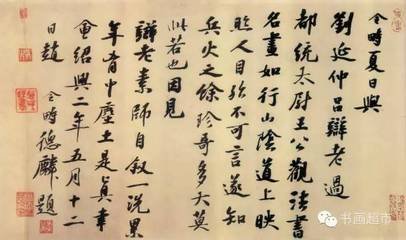 令時夏日與
劉延仲呂辯老過
都統太尉王公觀法書
名畫如行山陰道上映
照人目殆不可言遂知
兵火之餘珍奇多大莫
此若也因見
辯老素師自敘一洗累
年胸中塵土是真幸
會紹興二年五月十二
日趙令時德麟題
书画超市